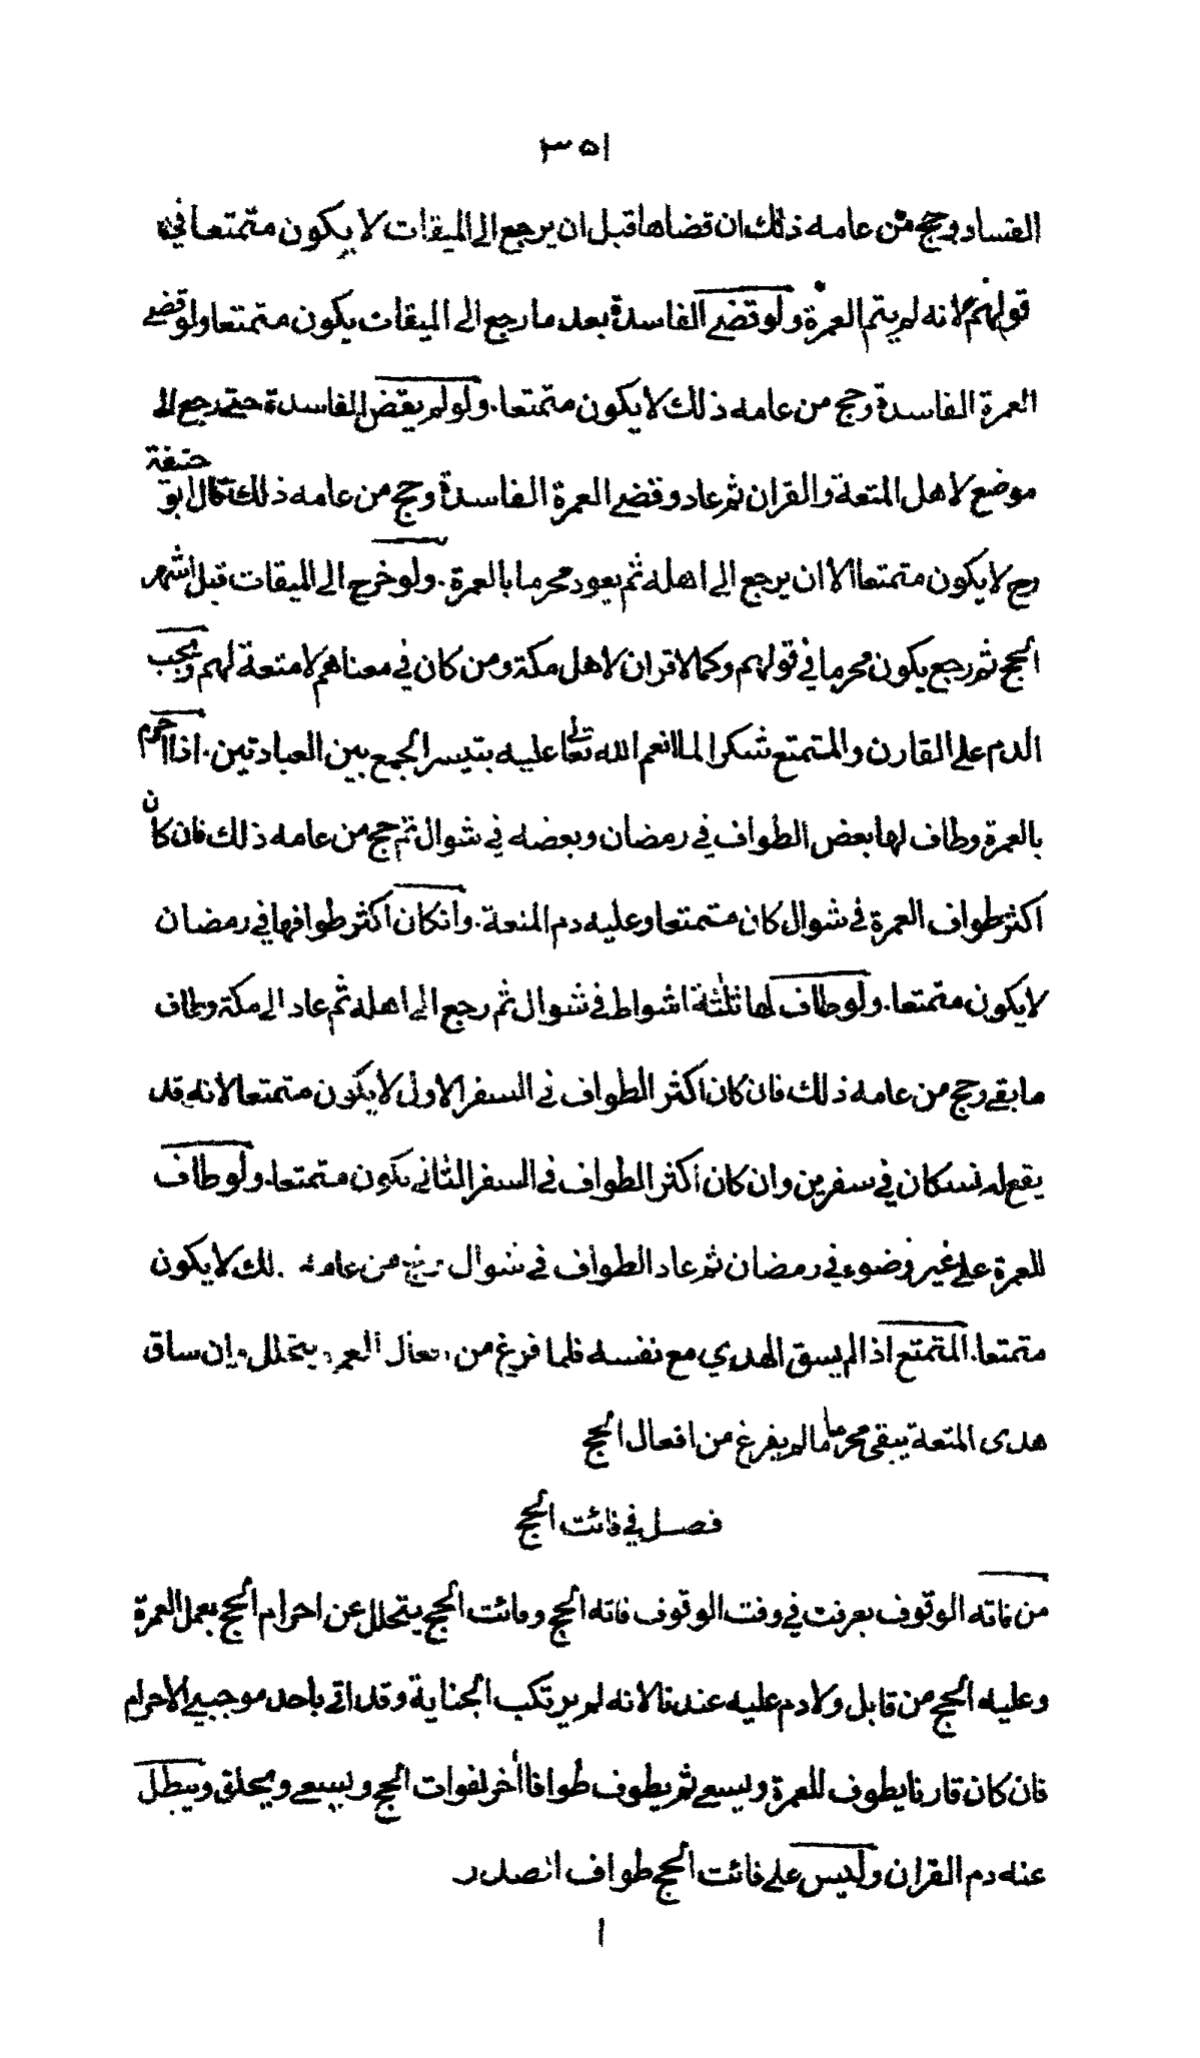 ٣٥١
الفساد وحج من عامه ذلك ان قضاها قبل ان يرجع الى الميقات لا يكون متمتعا في
قولهم لانه لم يتم العمرة ولو قضى الفاسدة بعد ما رجع الى الميقات يكون متمتعا ولو قضى
العمرة الفاسدة وحج من عامه ذلك لا يكون متمتعا. ولو لم يقض الفاسدة حتى رجع الى
موضع لاهل المتعة والقران ثم عاد وقضى العمرة الفاسدة وحج من عامه ذلك قال ابو حنيفة
رح لا يكون متمتعا الا ان يرجع الى اهله ثم يعود محرما بالعمرة. ولو خرج الى الميقات قبل اشهر
الحج ثم رجع يكون محرما في قولهم وكما لا قران لاهل مكة ومن كان في معناهم لا متعة لهم ويجب
الدم على القارن والمتمتع شكرا لما انعم الله تعالى عليه بتيسر الجمع بين العبادتين. اذا احرم
بالعمرة وطاف لها بعض الطواف في رمضان وبعضه في شوال ثم حج من عامه ذلك فان كان
اكثر طواف العمرة في شوال كان متمتعا وعليه دم المتعة. وانكان اكثر طوافها في رمضان
لا يكون متمتعا. ولو طاف لها ثلثة اشواط في شوال ثم رجع الى اهله ثم عاد الى مكة وطاف
ما بقي وحج من عامه ذلك فان كان اكثر الطواف في السفر الاول لا يكون متمتعا لانه قد
يقع له نسكان في سفرين وان كان اكثر الطواف في السفر الثاني يكون متمتعا. ولو طاف
للعمرة على غير وضوء في رمضان ثم عاد الطواف في شوال وحج من عامه ذلك لا يكون
متمتعا. المتمتع اذا لم يسق الهدي مع نفسه فلما فرغ من افعال العمرة يتحلل وان ساق
هدى المتعة يبقى محرما ما لم يفرغ من افعال الحج
فصل في فائت الحج
من فاته الوقوف بعرفت في وقت الوقوف فاته الحج وفائت الحج يتحلل عن احرام الحج بعمل العمرة
وعليه الحج من قابل ولا دم عليه عندنا لانه لم يرتكب الجناية وقد اتى باحد موجبي الاحرام
فان كان قارنا يطوف للعمرة ويسعى ثم يطوف طوافا اخر لفوات الحج ويسعى ويحلق ويبطل
عنه دم القران وليس على فائت الحج طواف الصدر
ا